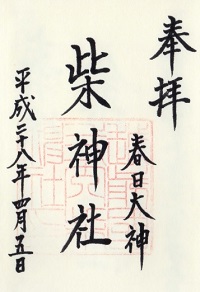 奉拝
春日大神
柴神社
平成二十八年四月五日